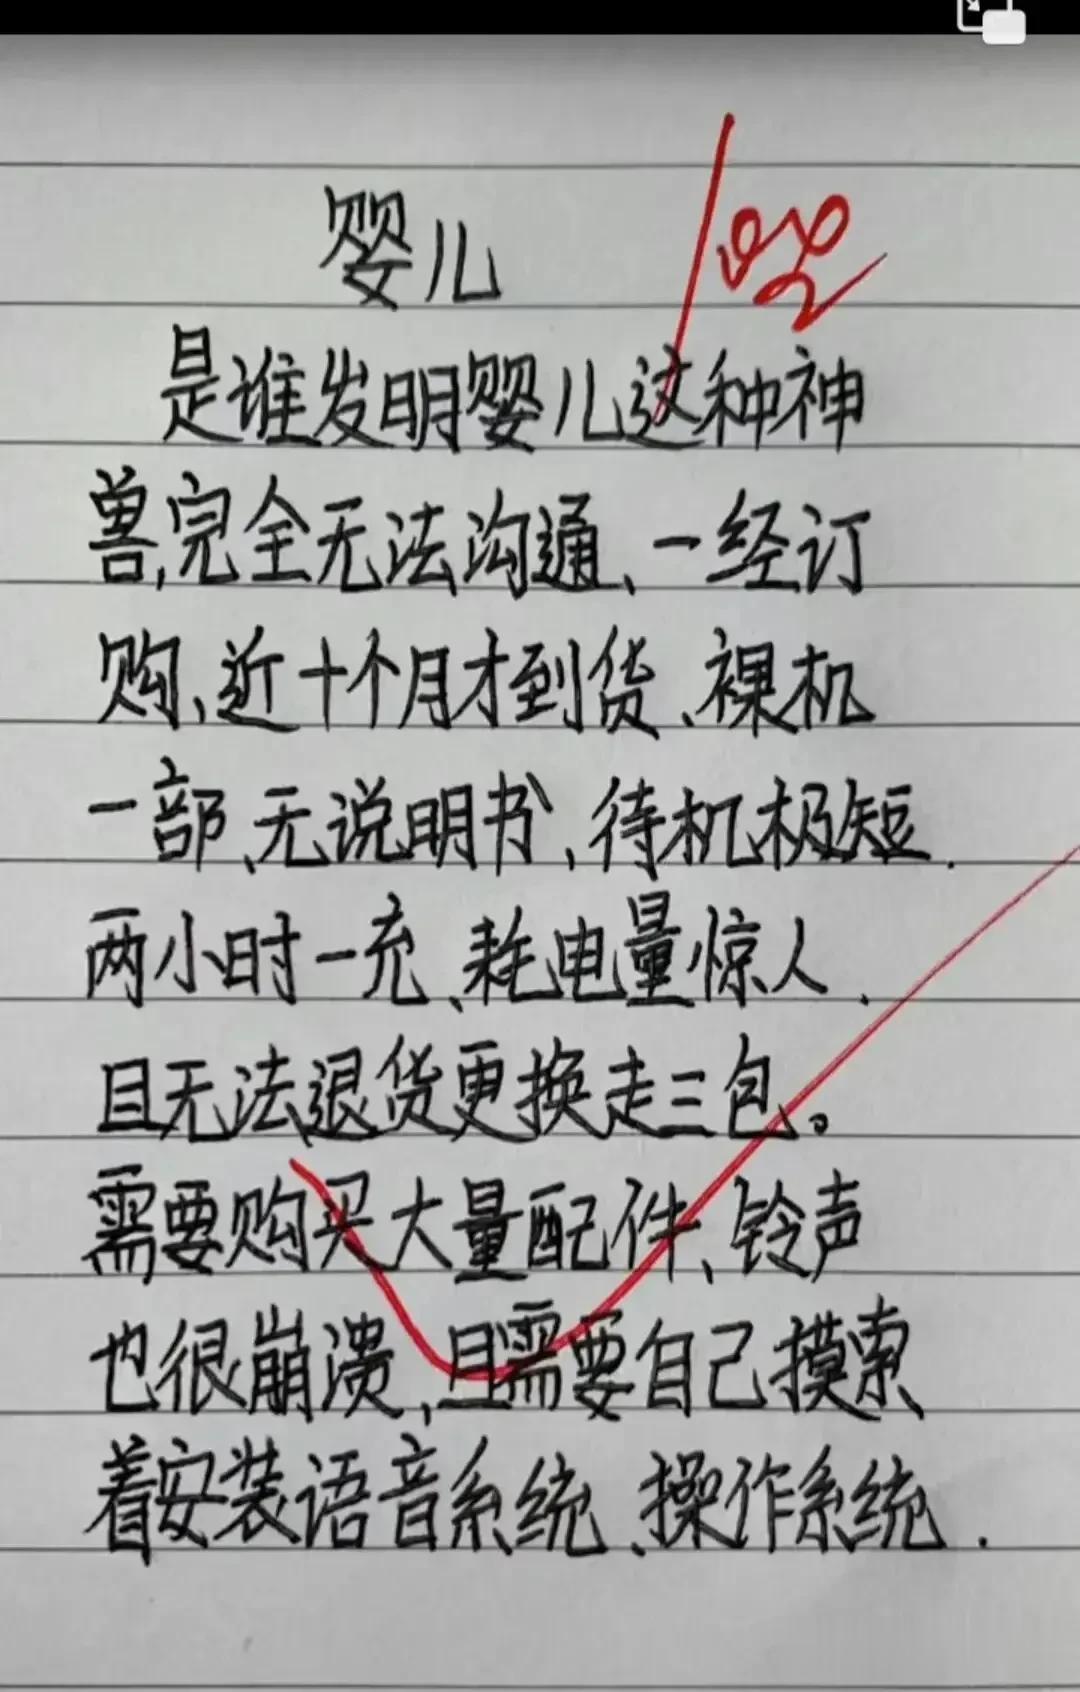 婴儿
100
是谁发明婴儿这种神
兽,完全无法沟通、一经订
购、近十个月才到货、裸机
一部、无说明书、待机极短.
两小时一充、耗电量惊人.
且无法退货更换走三包。
需要购买大量配件、铃声
也很崩溃,且需要自己摸索
着安装语音系统、操作系统.